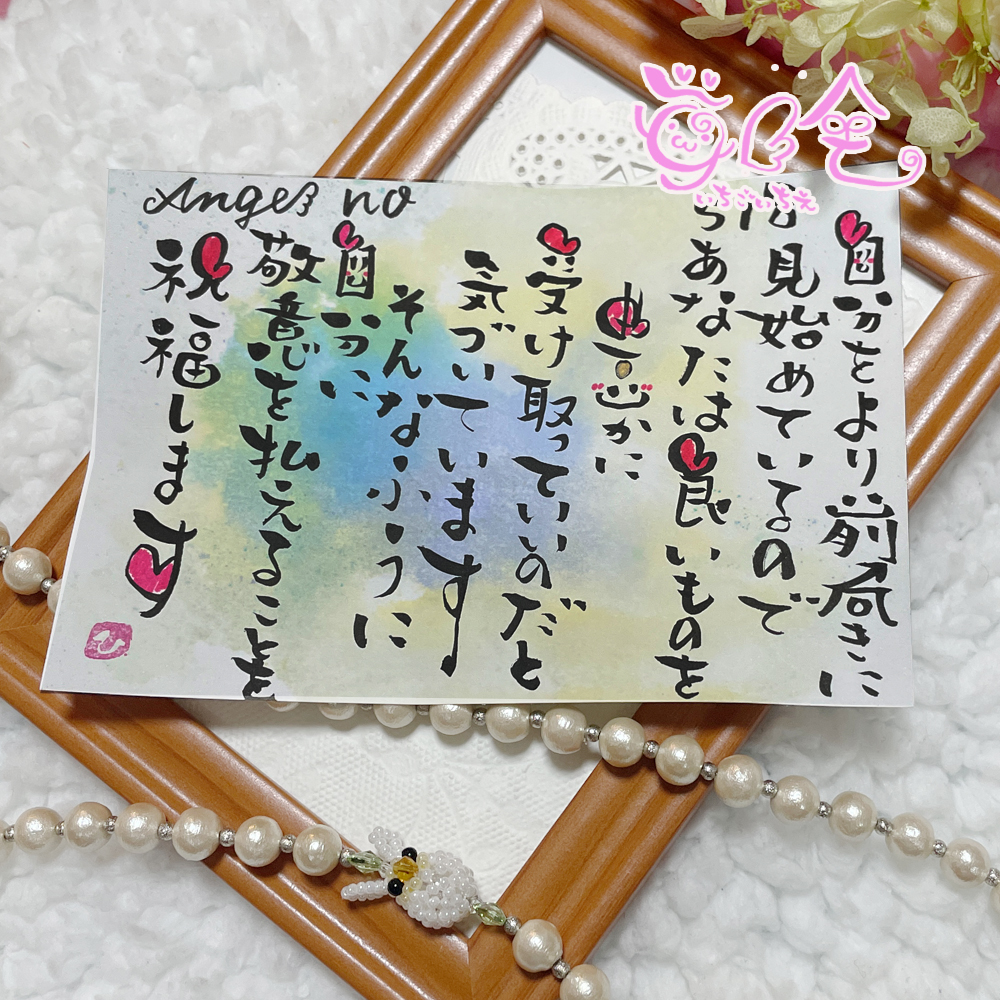 自分をより前向きに
見始めているので
あなたは良いものを
豊かに
受け取っていいのだと
気づいています
そんなふうに
自分に
敬意を払えることを
祝福します
Angel no
いちごいちえ